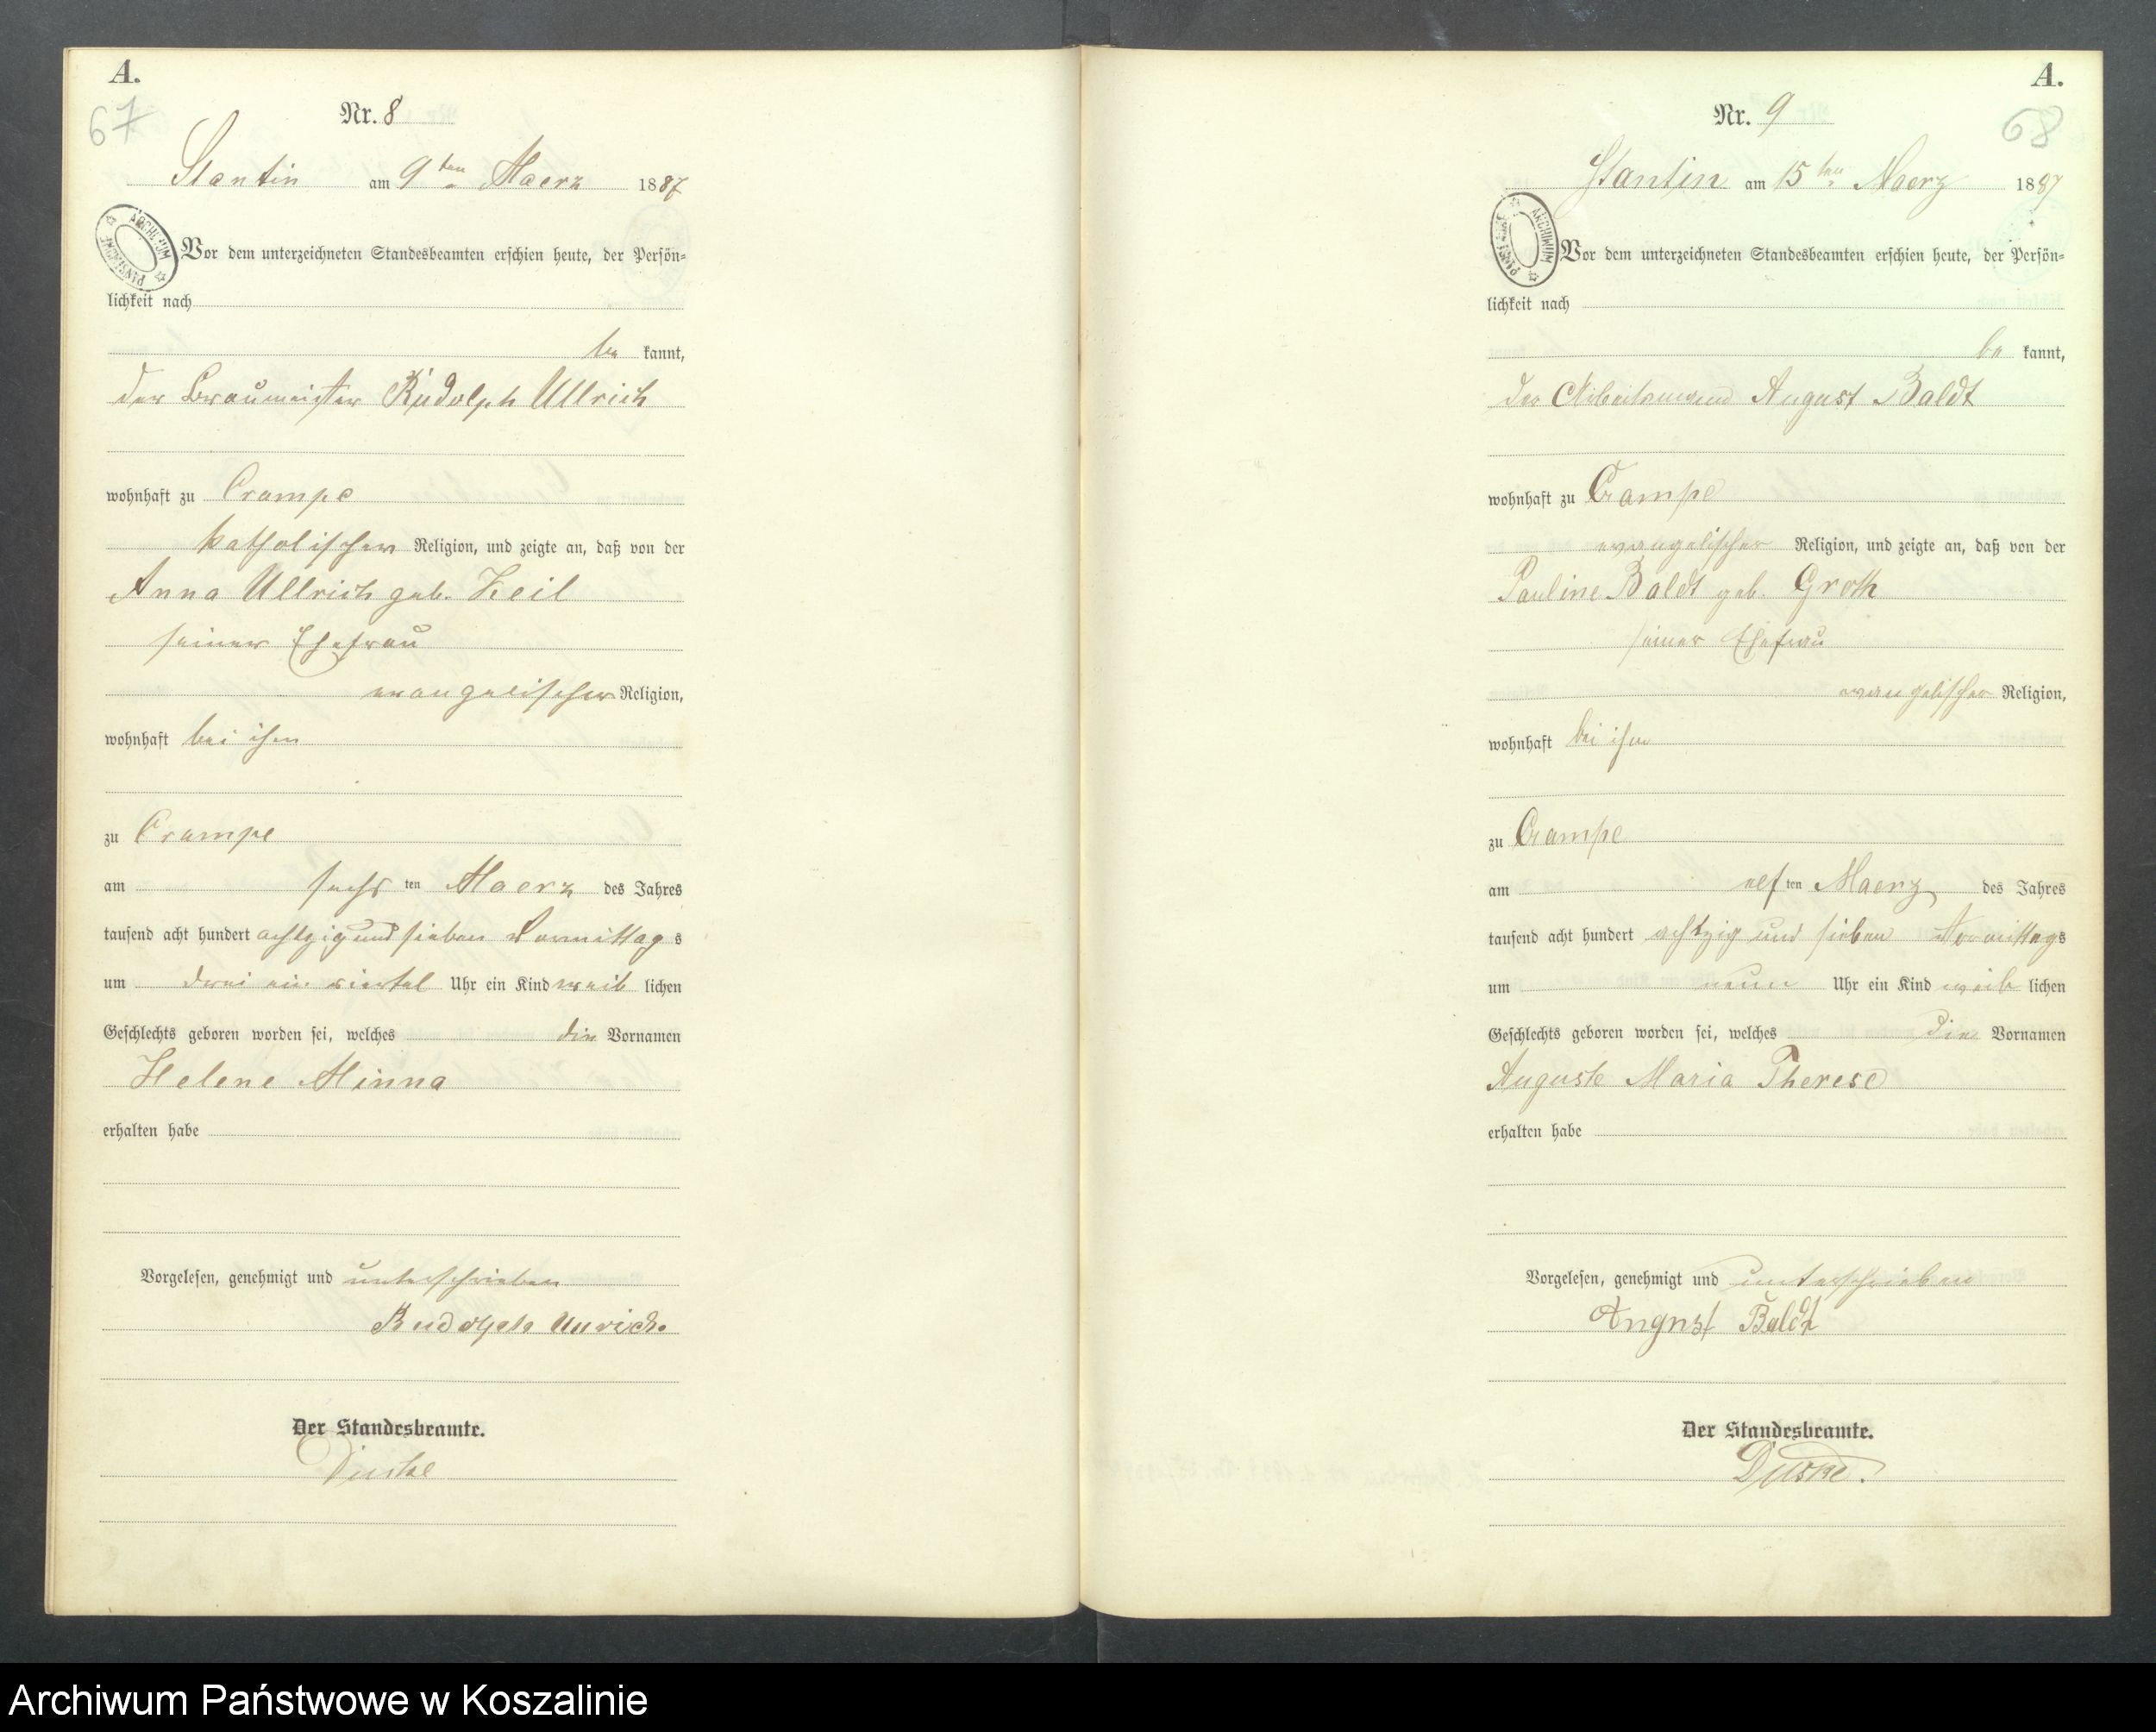 A.
67
Nr. 8
Stantin am 9ten Maerz 1887
ARCHIWUM PAŃSTWOWE
Vor dem unterzeichneten Standesbeamten erschien heute, der Persön-
lichkeit nach
be kannt,
der Braumeister Rudolph Ullrich
wohnhaft zu Crampe
katholischer Religion, und zeigte an, daß von der
Anna Ullrich geb. Keil
seiner Ehefrau
evangelischer Religion,
wohnhaft bei ihm
zu Crampe
am sechs ten Maerz des Jahres
tausend acht hundert achtzig und sieben Vormittag s
um drei ein viertel Uhr ein Kind weib lichen
Geschlechts geboren worden sei, welches die Vornamen
Helene Minna
erhalten habe
Vorgelesen, genehmigt und unterschrieben
Rudolph Ullrich.
Der Standesbeamte.
A.
68
Nr. 9
Stantin am 15ten Maerz 1887
ARCHIWUM PAŃSTWOWE
Vor dem unterzeichneten Standesbeamten erschien heute, der Persön-
lichkeit nach
be kannt,
der Arbeitsmann August Baldt
wohnhaft zu Crampe
evangelischer Religion, und zeigte an, daß von der
Pauline Baldt geb. Groth
seiner Ehefrau
evangelischer Religion,
wohnhaft bei ihm
zu Crampe
am elf ten Maerz des Jahres
tausend acht hundert achtzig und sieben Vormittags
um neun Uhr ein Kind weib lichen
Geschlechts geboren worden sei, welches die Vornamen
Auguste Maria Therese
erhalten habe
Vorgelesen, genehmigt und unterschrieben
August Baldt
Der Standesbeamte.
Archiwum Państwowe w Koszalinie